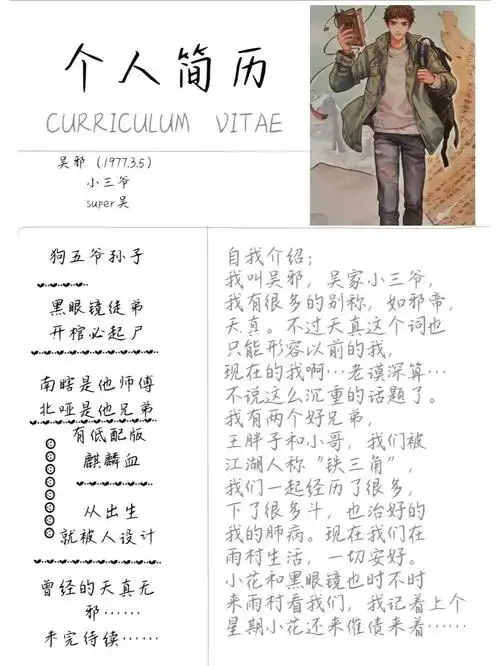 个人简历
CURRICULUM VITAE
吴邪（1977.3.5）
小三爷
super吴
狗五爷孙子
黑眼镜徒弟
开棺必起尸
南瞎是他师傅
北哑是他兄弟
有低配版
麒麟血
从出生
就被人设计
曾经的天真无
邪……
未完待续……
自我介绍；
我叫吴邪，吴家小三爷，
我有很多的别称，如邪帝，
天真。不过天真这个词也
只能形容以前的我，
现在的我啊…老谟深算…
不说这么沉重的话题了。
我有两个好兄弟，
王胖子和小哥，我们被
江湖人称“铁三角”，
我们一起经历了很多，
下了很多斗，也治好的
我的肺病。现在我们在
雨村生活，一切安好。
小花和黑眼镜也时不时
来雨村看我们，我记着上个
星期小花还来催债来着……